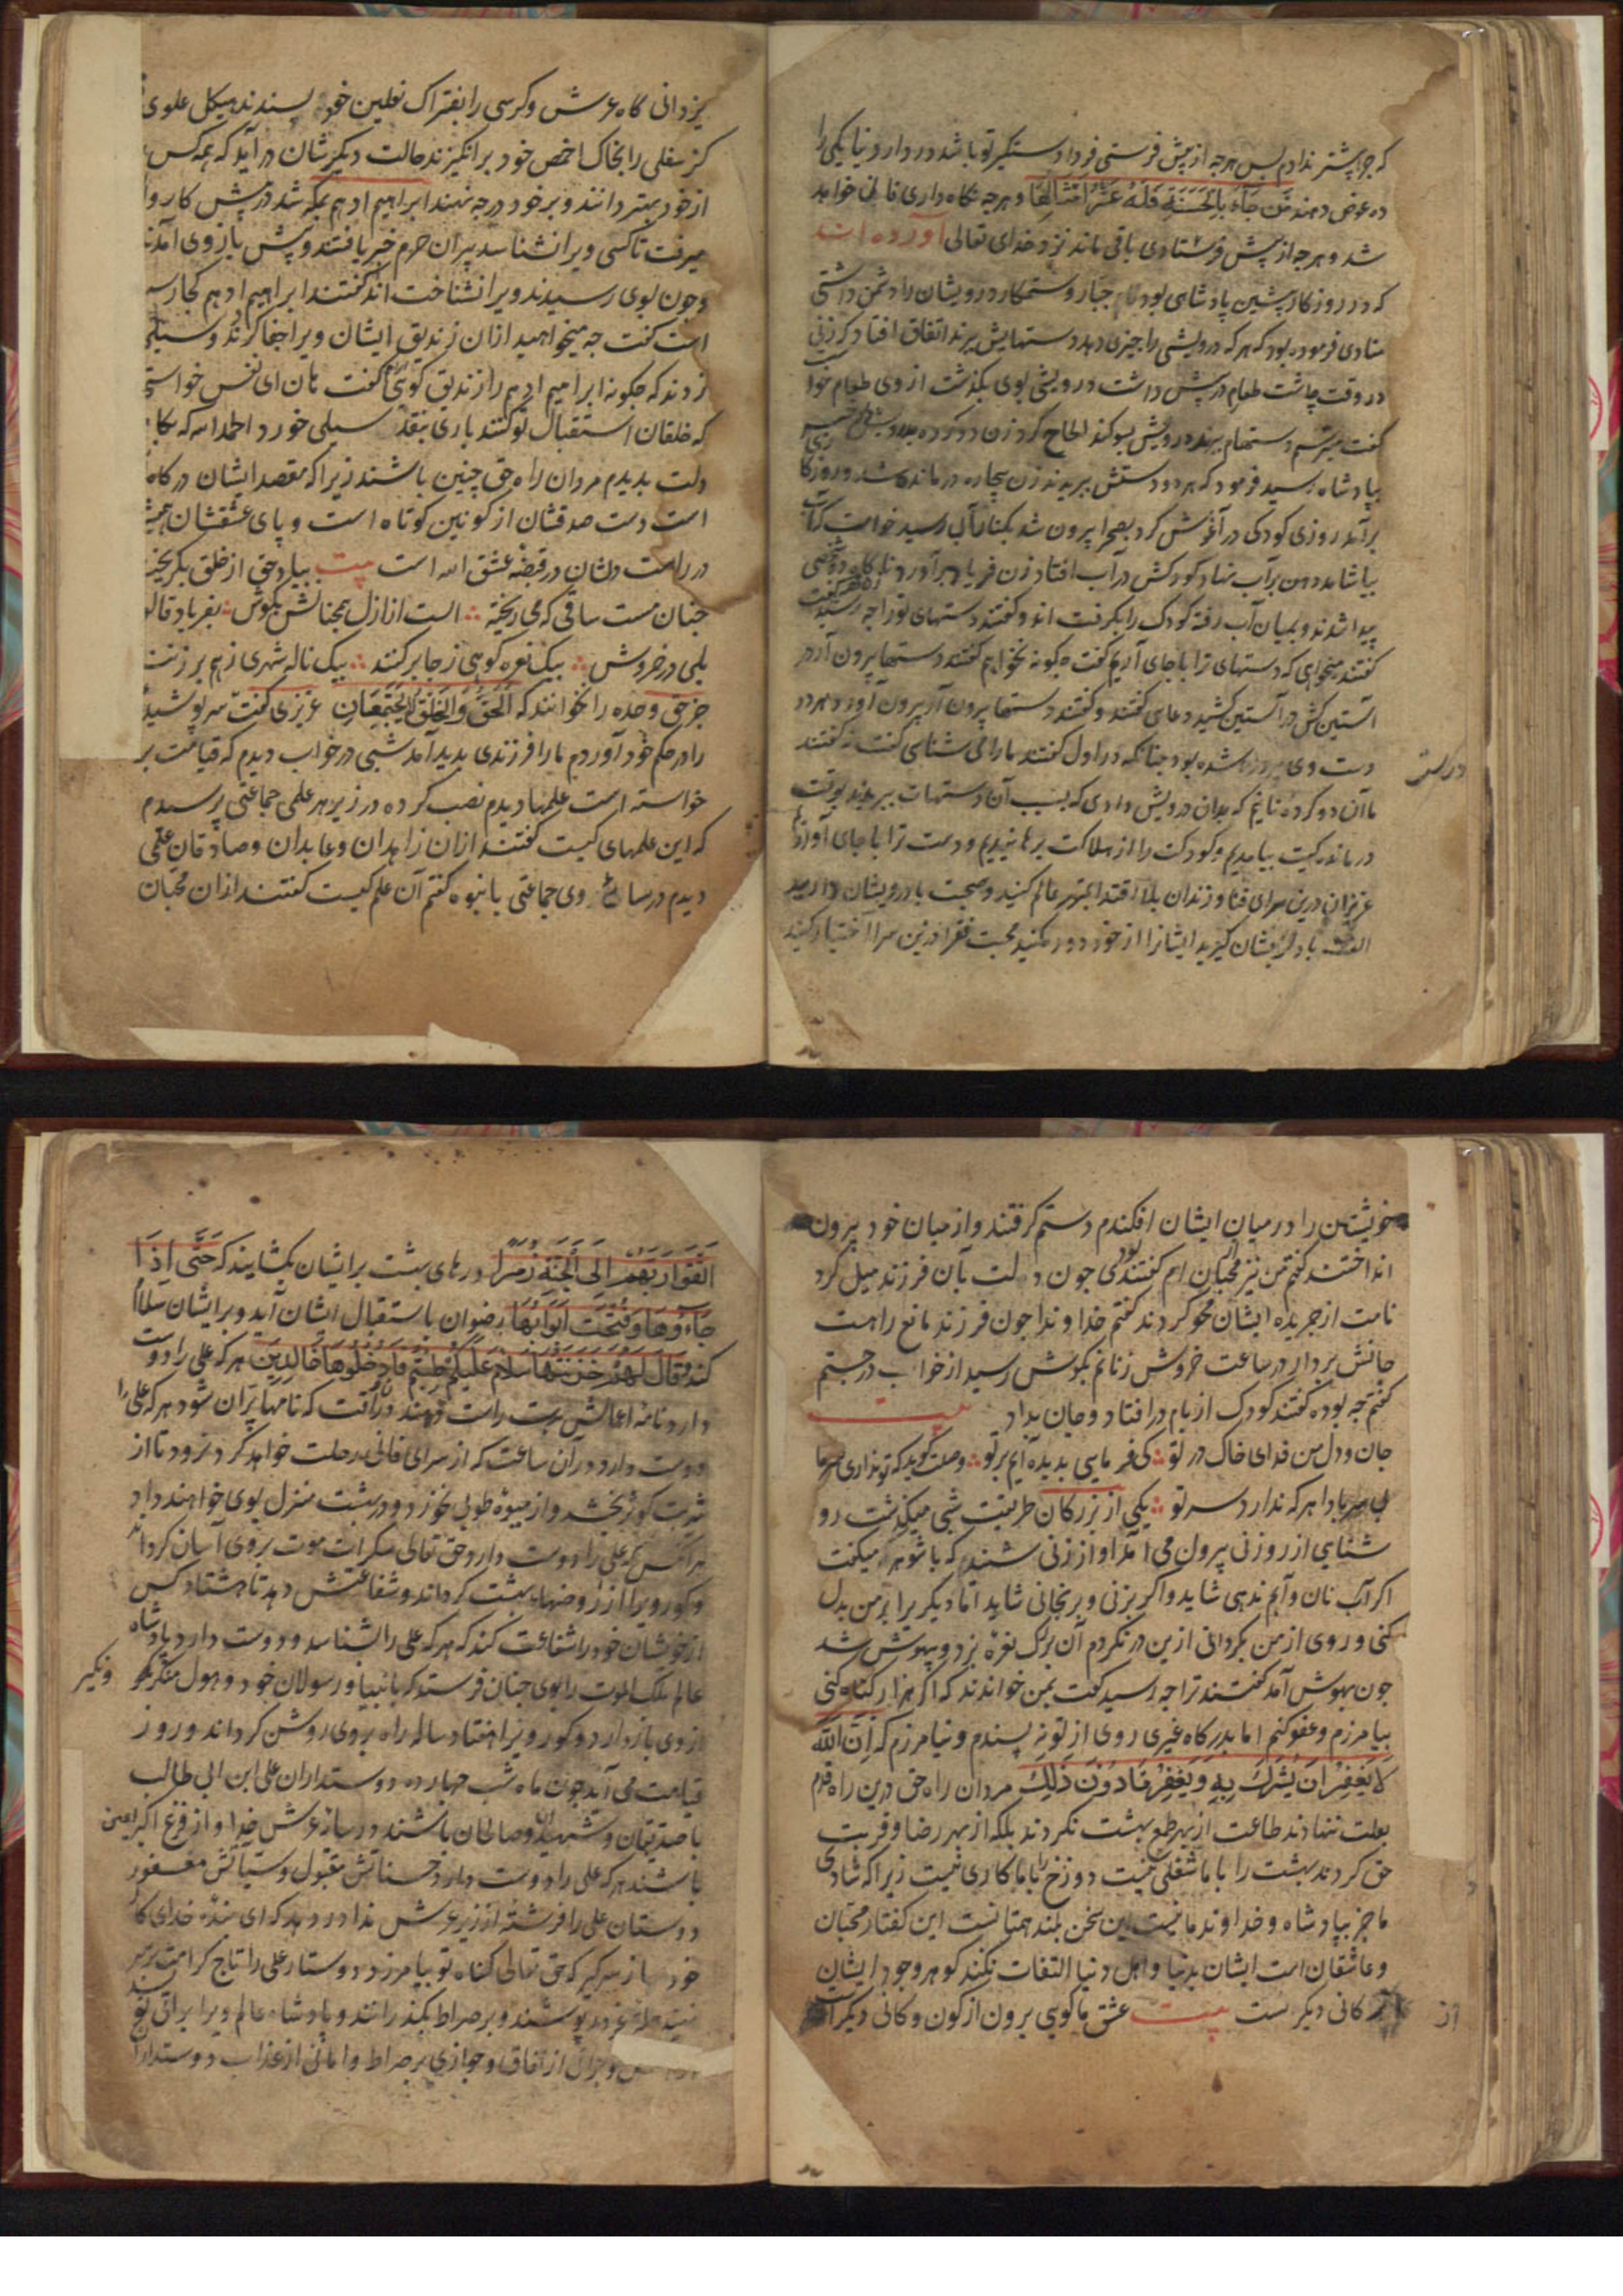 که چرا پیشتر ندادم پس هرچه از پیش فرستی فردا دستگیر تو باشد در دار دنیا یکی را
ده عوض دهند مَن جَاءَ بِالحَسَنَةِ فَلَهُ عَشْرُ اَمْثَالِهَا و هرچه نکاه داری فانی خواهد
شد و هرچه از پیش فرستادی باقی ماند نزد خدای تعالی آورده اند
که در روزکار پیشین پادشاهی بود جبار و ستمکار درویشان را دشمن داشتی
منادی فرموده بود که هر که درویشی را چیزی دهد دستهایش برند اتفاق افتاد که زنی
در وقت چاشت طعام در پیش داشت درویشی بوی بکذشت از وی طعام خوا
کفت میترسم دستهام برند درویش سوکند الحاح کرد زن دو کرده بدرویش داد خبر
بپادشاه رسید فرمود که هر دو دستش ببریدند زن بیچاره درمانده شد و روزکا
برآمد روزی کودکی در آغوش کرد بصحرا بیرون شد بکنار آبی رسید خواست که آب
بیاشامد دهن بر آب نهاد کودکش در آب افتاد زن فریاد برآورد ناکاه دو شخص
پیدا شدند و بمیان آب رفته کودک را بکرفتند و کفتند دستهای تو را چه رسید
کفتند میخواهی که دستهای ترا با جای آریم کفت چکونه نخواهم کفتند دستها بیرون آر در
آستین کش در آستین کشید دعای کفتند و کفتند دستها بیرون آر بیرون آورد هر دو
دست وی درست شده بود چنانکه در اول کفتند ما را می شناسی کفت نه کفتند
درست
ما آن دو کرده نانیم که بدان درویش دادی که بسبب آن دستهات ببریدند بوقت
درماندکیت بیامدیم و کودکت را از هلاکت برهانیدیم و دست ترا با جای آوردیم
عزیزان درین سرای فنا و زندان بلا اقتدا بمهتر عالم کنید و صحبت با درویشان دارید
الفت با درویشان کیرید ایشانرا از خود دور مکنید محبت فقرا درین سرا اختیار کنید
یزدانی کاه عرش و کرسی را بفتراک نعلین خود پسندند هیکل علوی
کز سفلی را بخاک اخمص خود برانکیزند حالت دیکرشان درآید که همه کس
از خود بهتر دانند و بر خود درجه نهند ابراهیم ادهم بمکه شد در پیش کاروا
میرفت تا کسی ویرا نشناسد پیران حرم خبر یافتند و پیش باز وی آمدند
و چون بوی رسیدند ویرا نشناخت اند کفتند ابراهیم ادهم کجا رسـ
است کفت چه میخواهید از ان زندیق ایشان ویرا جفا کردند و سیلی
زدند که چکونه ابراهیم ادهم را زندیق کوئی کفت هان ای نفس خواستی
که خلقان استقبال تو کنند باری بنقد سیلی خورد الحمد لله که بکا
دلت بدیدم مردان راه حق چنین باشند زیرا که مقصد ایشان درکاه
است دست صدقشان از کونین کوتاه است و پای عشقشان همیشـ
در راهست دلشان در قبضه عشق الله است بیت بیاد حق از خلق بکریخته
چنان مست ساقی که می ریخته الست از ازل همچنانش بکوش بفریاد قالو
بلی در خروش بیک نعره کوهی ز جا برکنند بیک ناله شهری بهم برزنند
جز حق وحده را نخوانند که اَلْحَقُّ وَالْخَلْقُ لَا یَجْتَمِعَانِ عزیزی کفت سرپوشیدۀ
را در حکم خود آوردیم ما را فرزندی پدید آمد شبی در خواب دیدم که قیامت بر
خواسته است علمها دیدم نصب کرده در زیر هر علمی جماعتی پرسیدم
که این علمهای کیست کفتند از ان زاهدان و عابدان و صادقان علمی
دیدم در سایۀ وی جماعتی با نبوه کفتم آن علم کیست کفتند از ان محبان
خویشتن را در میان ایشان افکندم دستم کرفتند و از میان خود بیرون
انداختند کفتم من نیز محبان ام کفتند بودی چون دلت بآن فرزند میل کرد
نامت از جریده ایشان محو کردند کفتم خداوندا چون فرزند مانع راهست
جانش بردار در ساعت خروش زنانم بکوش رسید از خواب درجستم
کفتم چه بوده کفتند کودک از بام در افتاد و جان بداد بیت
جان و دل من فدای خاک در تو کی فرمایی بدیده آیم بر تو وصلت کوید که تو نداری سر ما
بی سر بادا هر که ندارد سر تو یکی از بزرکان طریقت شبی میکذشت رو
شنایی از روزنی بیرون می آمد آواز زنی شنید که با شوهر میکفت
اکر آب نان و آبم ندهی شاید و اکر بزنی و برنجانی شاید اما دیکر یرا بر من بدل
کنی و روی از من بکردانی ازین در نکردم آن بزرک نعره بزد و بیهوش شد
چون بهوش آمد کفتند ترا چه رسید کفت بمن خواندند که اکر هزار کناه کنی
بیامرزم و عفو کنم اما بدرکاه غیری روی از تو نپسندم و نیامرزم که اِنَّ اللهَ
لَا یَغْفِرُ اَنْ یُشْرَكَ بِهِ وَ یَغْفِرُ مَا دُونَ ذٰلِكَ مردان راه حق درین راه قدم
بعلت ننهادند طاعت از بهر طمع بهشت نکردند بلکه از بهر رضا و قربت
حق کردند بهشت را با ما شغلی نیست دوزخ را با ما کاری نیست زیرا که شادی
ما جز بپادشاه و خداوند ما نیست این سخن بلند همتانست این کفتار محبان
و عاشقان است ایشان بدنیا و اهل دنیا التفات نکنند کوهر وجود ایشان
از کانی دیکرست بیت عشق ما کویی برون از کون و کانی دیکراست
اتَّقَوْا رَبَّهُمْ اِلَى الْجَنَّةِ زُمَرًا درهای بهشت بر ایشان بکشایند که حَتَّى اِذَا
جَاءُوهَا وَ فُتِحَتْ اَبْوَابُهَا رضوان باستقبال ایشان آید و بر ایشان سلام
کند وَ قَالَ لَهُمْ خَزَنَتُهَا سَلَامٌ عَلَیْکُمْ طِبْتُمْ فَادْخُلُوهَا خَالِدِینَ هر که علی را دوست
دارد نامه اعمالش بدست راست دهند در آن وقت که نامها پران شود هر که علی را
دوست دارد در آن ساعت که از سرای فانی رحلت خواهد کرد نرود تا از
شربت کوثر بچشد و از میوه طوبی نخورد و در بهشت منزل بوی خواهند داد
هر آنکس که علی را دوست دارد حق تعالی سکرات موت بر وی آسان کرداند
و کور ویرا از روضهاء بهشت کرداند و شفاعتش دهد تا هشتاد کس
از خویشان خود را شفاعت کند که هر که علی را بشناسد و دوست دارد پادشاه
عالم ملک الموت را بوی چنان فرستد که بانبیا و رسولان خود و هول منکر
و نکیر
از وی بازدارد و کور ویرا هفتاد ساله راه بر وی روشن کرداند و روز
قیامت می آید چون ماه شب چهارده دوستداران علی ابن ابی طالب
با صدیقان و شهیدان و صالحان باشند در سایۀ عرش خدا و از فزع اکبر ایمن
باشند هر که علی را دوست دارد حسناتش مقبول و سیئاتش مغفور
دوستان علی را فرشته از زیر عرش ندا در دهد که ای بندۀ خدای کار
خود از سر کیر که حق تعالی کناه تو بیامرزد دوستار علی را تاج کرامت بر سر
نهند پوشند و بر صراط بکذرانند و پادشاه عالم ویرا براتی
از نفاق و جوازی بر صراط و امانی از عذاب دوستدارا